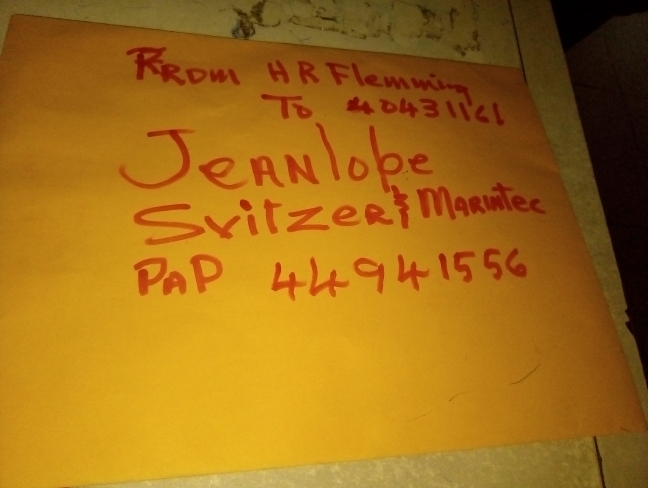 From HR Flemming
To 40431161
Jeanlope
Svitzer & Marintec
PAP 44941556